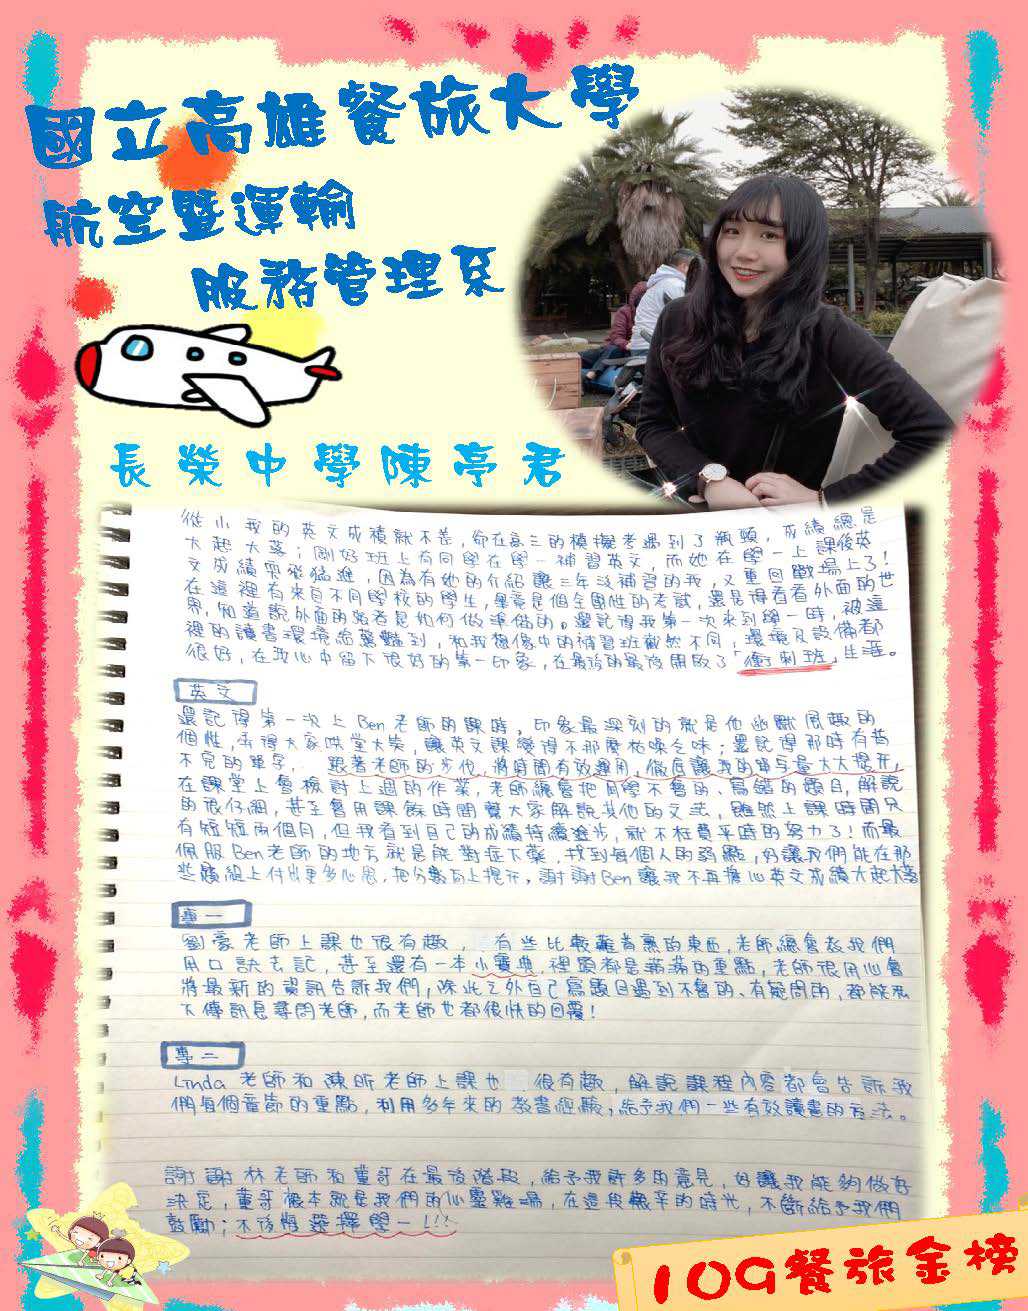 國立高雄餐旅大學
航空暨運輸
服務管理系
長榮中學陳亭君
從小我的英文成積就不差，卻在高三的模擬考遇到了瓶頸，成績總是
大起大落；剛好班上有同學在學一補習英文，而她在學一上課後英
文成績突飛猛進，因為有她的介紹讓三年沒補習的我，又重回戰場上了！
在這裡有來自不同學校的學生，畢竟是個全國性的考試，還是得看看外面的世
界，知道說外面的強者是如何做準備的。還記得我第一次來到學一時，被這
裡的讀書環境給驚豔到，和我想像中的補習班截然不同，環境及設備都
很好，在我心中留下很好的第一印象，在最後的最後開啟了「衝刺班」生涯。
英文
還記得第一次上Ben老師的課時，印象最深刻的就是他幽默風趣的
個性，弄得大家哄堂大笑，讓英文課變得不那麼枯燥乏味；還記得那時有背
不完的單字，跟著老師的步伐，將時間有效運用，徹底讓我的單字量大大提升，
在課堂上會檢討上週的作業，老師總會把同學不會的、寫錯的題目，解說
的很仔細，甚至會用課餘時間幫大家解說其他的文法，雖然上課時間只
有短短兩個月，但我看到自己的成績持續進步，就不枉費平時的努力了！而最
佩服Ben老師的地方就是能對症下藥，找到每個人的弱點，好讓我們能在那
些題組上付出更多心思，把分數向上提升，謝謝Ben讓我不再擔心英文成績大起大落
專一
劉豪老師上課也很有趣，有些比較難背熟的東西，老師總會教我們
用口訣去記，甚至還有一本小寶典裡頭都是滿滿的重點，老師很用心會
將最新的資訊告訴我們，除此之外自己寫題目遇到不會的、有疑問的，都能私
下傳訊息尋問老師，而老師也都很快的回覆！
專二
Linda老師和陳昕老師上課也很有趣，解說課程內容都會告訴我
們每個章節的重點，利用多年來的教書經驗，給予我們一些有效讀書的方法。
謝謝林老師和董哥在最後階段，給予我許多的意見，好讓我能夠做好
決定，董哥根本就是我們的心靈雞湯，在這段艱辛的時光，不斷給予我們
鼓勵；不後悔選擇學一！！！
109餐旅金榜